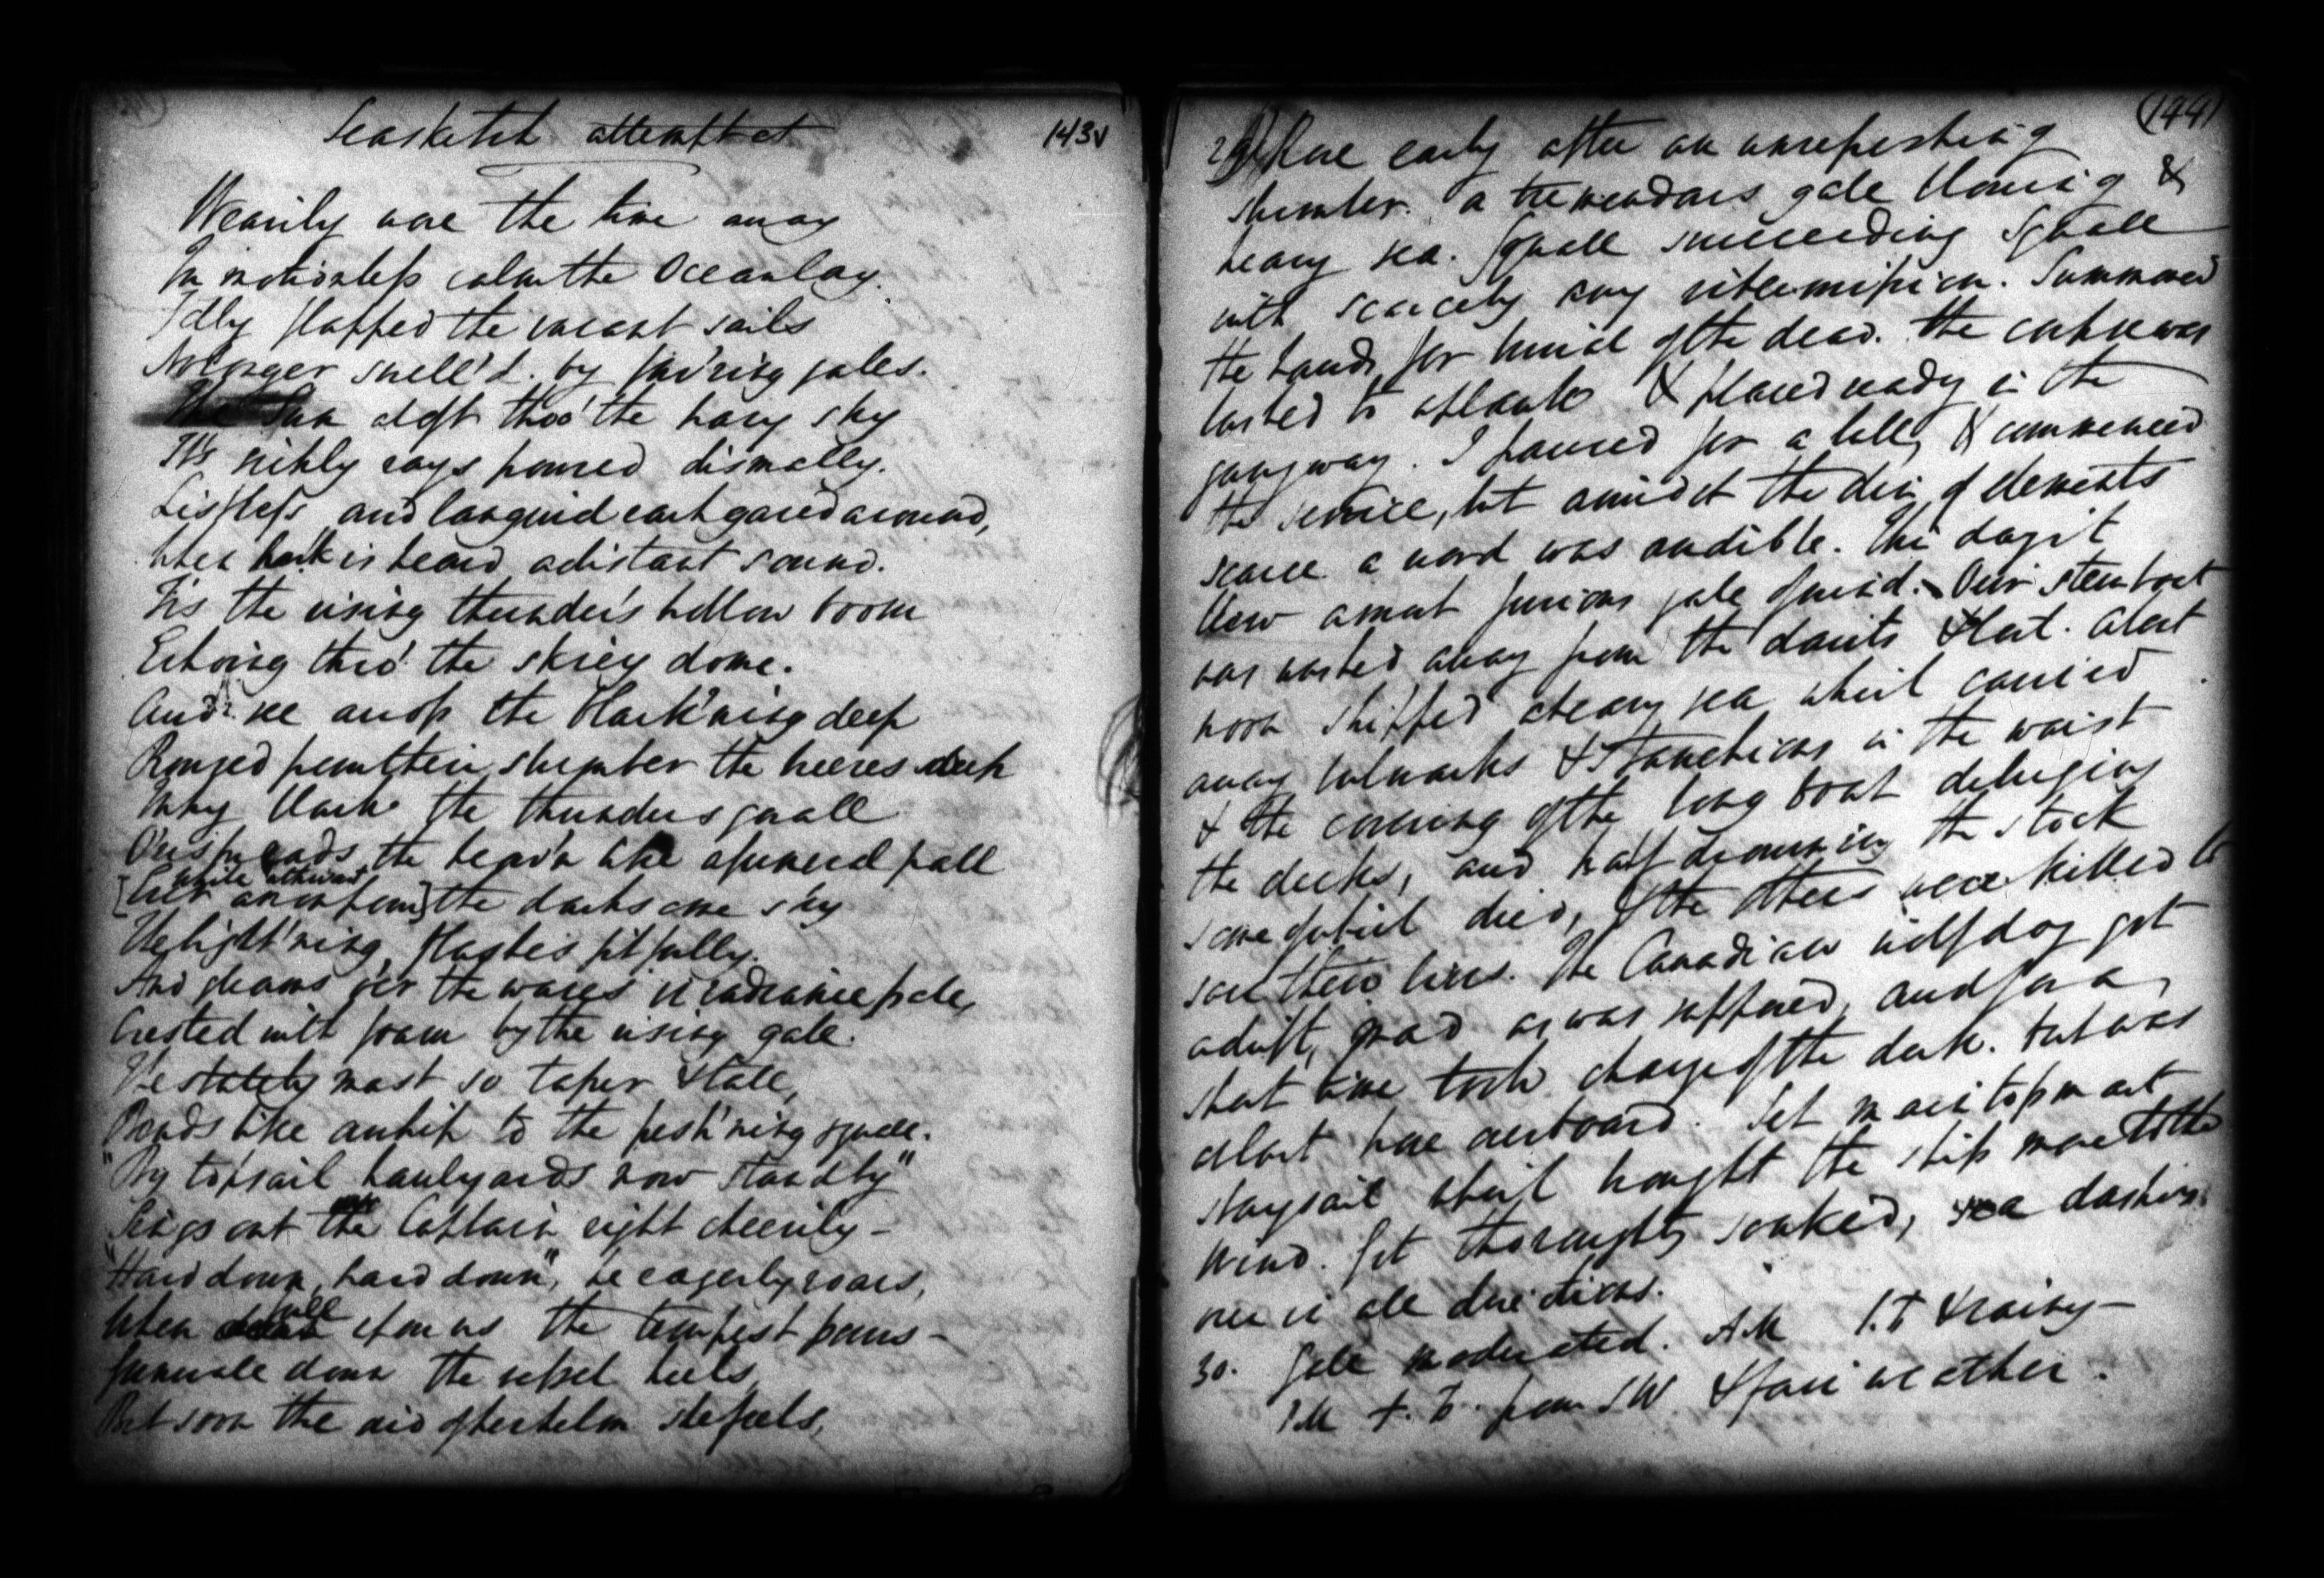 Seasketch attempt at
143v
Wearily wore the time away
In motionless calm the Ocean lay.
Idly flapped the vacant sails
No longer swell'd by fav'ring gales.
The Sun aloft thro' the hazy sky
Its sickly rays poured dismally.
Listless and languid each gazed around,
When hark is heard a distant sound.
Tis the rising thunder's hollow boom
Echoing thro' the skiey dome.
And see across the black'ning deep
Roused from their slumber the breezes
Inky black the thunder squall
O'erspreads the heav'n like a funeral pall
while athwart
[ from] the darksome sky
The light'ning flashes fitfully.
And gleams o'er the waves in radiance pale,
Crested with foam by the rising gale.
The stately mast so taper & tall,
Bends like a whip to the fresh'ning squall.
"By topsail haulyards now standby"
Sings out the Captain right cheerily -
"Hard down, hard down", he eagerly roars,
full
When upon us the tempest pours -
Gunwale down the vessel heels,
But soon the aid of her helm she feels,
(144)
29 Rose early after an unrefreshing
slumber. a tremendous gale blowing &
heavy sea. Squall succeeding Squall
with scarcely any intermission. Summoned
the hands for burial of the dead. The corpse was
lashed to a plank & placed ready in the
gangway. I paused for a lull, & commenced
the service, but amidst the din of elements
scarce a word was audible. This day it
blew a most furious gale of wind. Our stern boat
was washed away from the davits & lost. About
noon shipped a heavy sea which carried
away bulwarks & stanchions in the waist
& the covering of the long boat deluging
the decks, and half drowning the stock
some of which died, & the others were killed to
save their lives. The Canadian wolf dog got
adrift, mad as was supposed, and for a
short time took charge of the deck. but was
at last hove overboard. Set main topmast
staysail which brought the ship more to the
wind. Got thoroughly soaked, sea dashing
over in all directions.
30. Gale moderated. AM & rainy -
PM from SW. & fair weather.